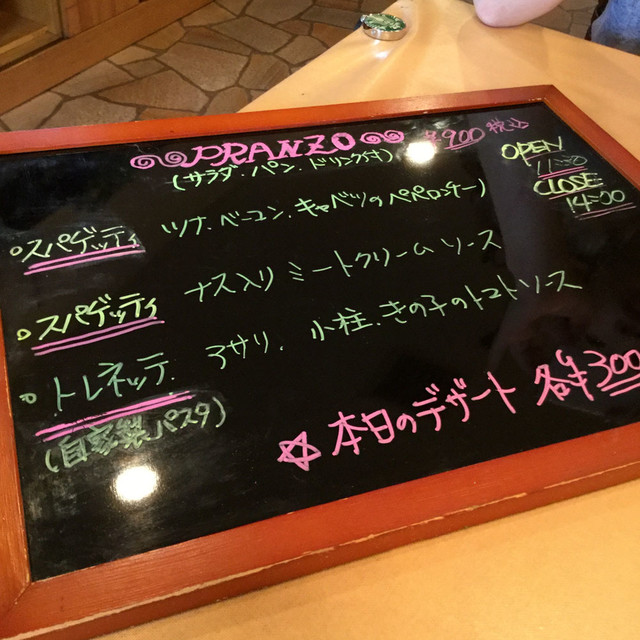 PRANZO ¥900 税込
(サラダ・パン・ドリンク付)
OPEN
11:30
CLOSE
14:00
スパゲッティ ツナ、ベーコン、キャベツのペペロンチーノ
スパゲッティ ナス入りミートクリームソース
トレネッテ アサリ、小柱、きの子のトマトソース
(自家製パスタ)
☆本日のデザート 各¥300